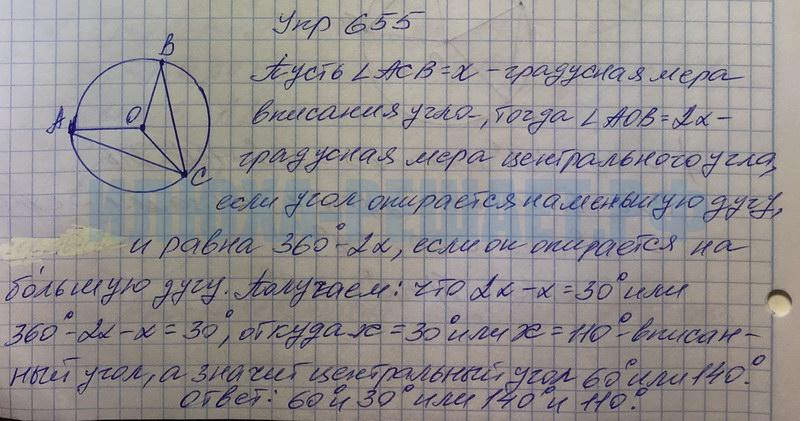 Упр 655
B
A
O
C
Пусть ∠ACB = x - градусная мера
вписания угла, тогда ∠AOB = 2x -
градусная мера центрального угла,
если угол опирается на меньшую дугу,
и равна 360° - 2x, если он опирается на
бо́льшую дугу. Получаем: что 2x - x = 30° или
360° - 2x - x = 30°, откуда x = 30° или x = 110° - вписан-
ный угол, а значит центральный угол 60° или 140°.
ответ: 60° и 30° или 140° и 110°.